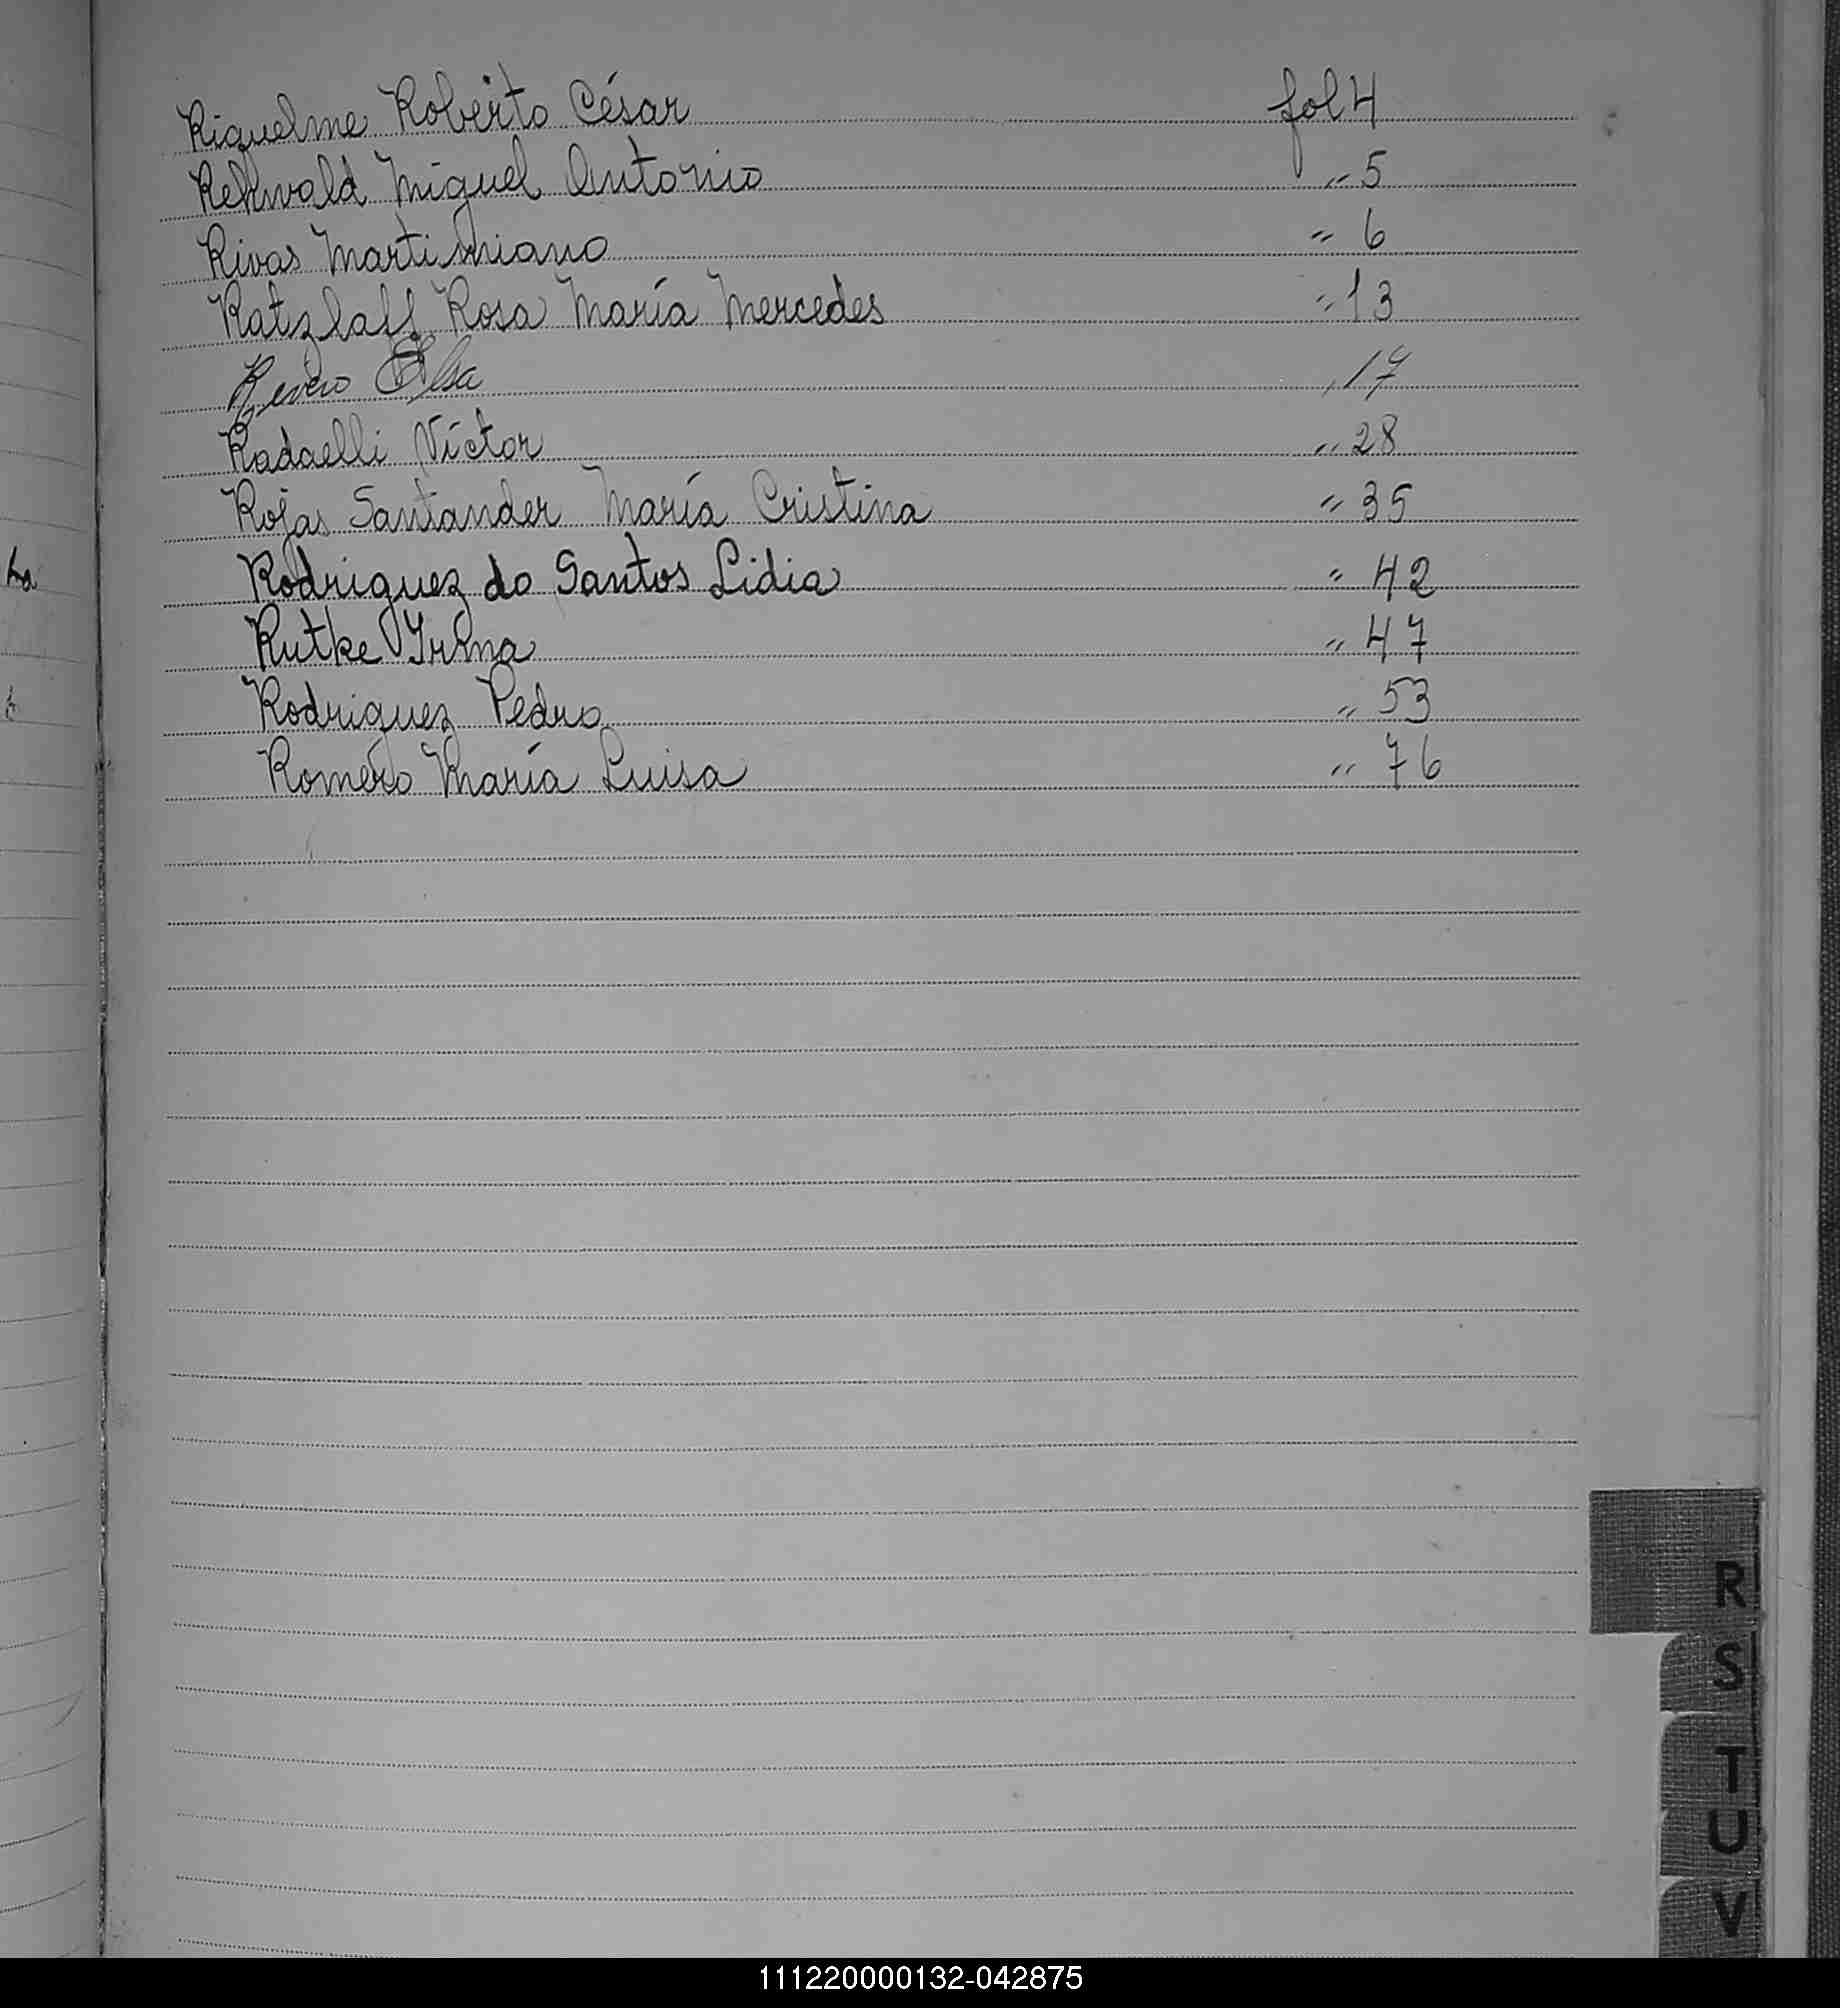 Riquelme Roberto César fol 4
Rehwald Miguel Antonio " 5
Rivas Martimiano " 6
Ratzlaff Rosa María Mercedes " 13
Elsa " 17
Radaelli Víctor " 28
Rojas Santander María Cristina " 35
Rodriguez do Santos Lidia " 42
Rutke Yrma " 47
Rodriguez Pedro " 53
Romero María Luisa " 76
R
S
T
U
V
111220000132-042875